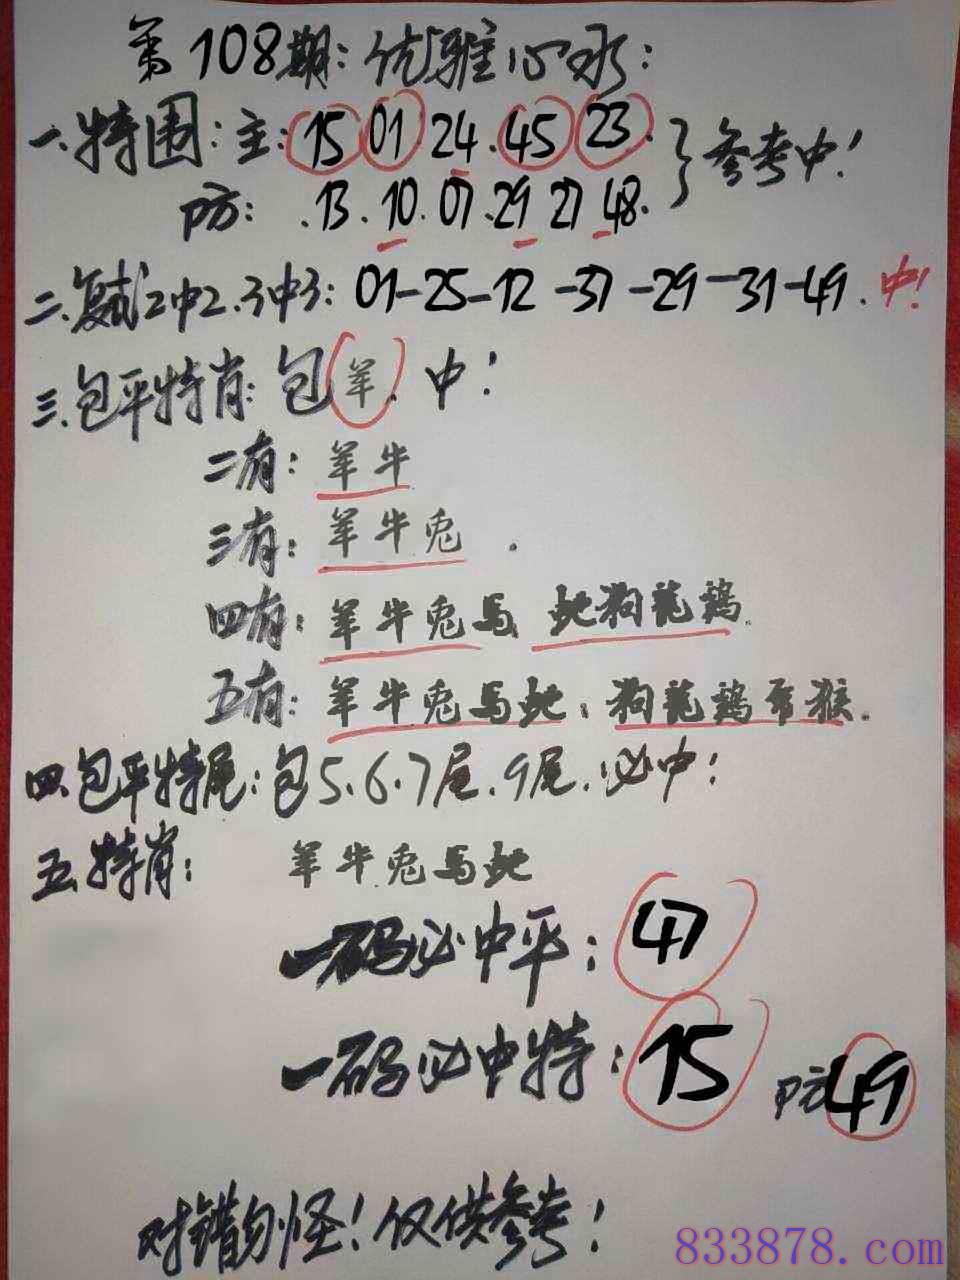 第108期:优雅心水:
一.特围:主:15 01 24.45 23.
参考中!
防:.13.10.07.29 27 48.
二.复试2中2.3中3:01-25-12-37-29-31-49.中!
三.包平特肖:包羊.中!
二有:羊牛
三有:羊牛兔.
四有:羊牛兔马 蛇狗龍鷄.
五有:羊牛兔马蛇:狗龍鷄 猴.
四.包平特尾:包5.6.7尾.9尾.必中!
五.特肖:羊牛兔马蛇
一码必中平:47
一码必中特:15 防49
对错勿怪!仅供参考!
833878.com